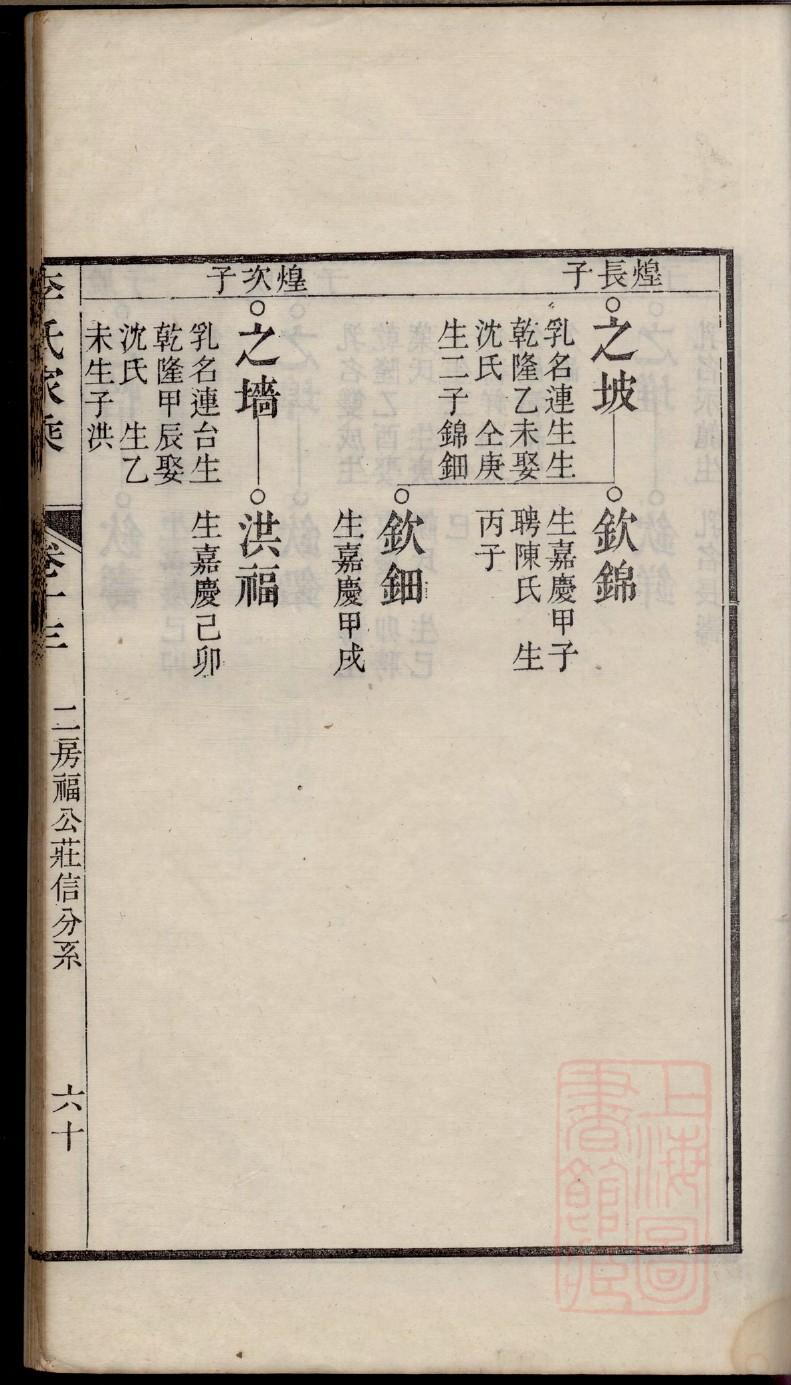 煌長子
之坡
乳名連生生
乾隆乙未娶
沈氏 仝庚
生二子錦鈿
欽錦
生嘉慶甲子
聘陳氏 生
丙子
欽鈿
生嘉慶甲戌
煌次子
之墻
乳名連台生
乾隆甲辰娶
沈氏 生乙
未生子洪
洪福
生嘉慶己卯
李氏家乘 卷十三 二房福公莊信分系 六十
上海圖書館藏